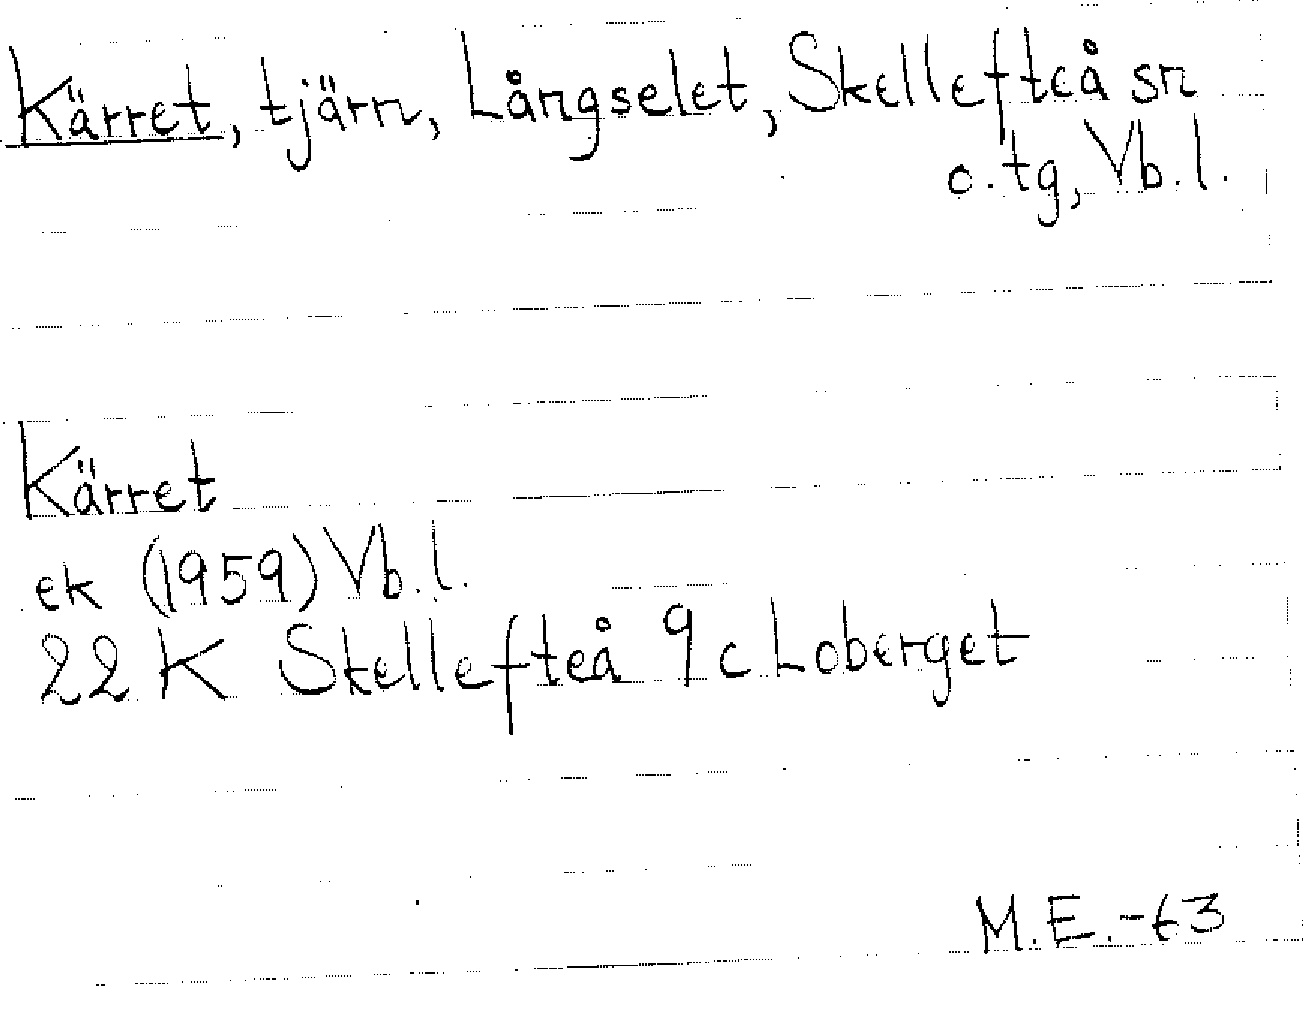 Kärret, tjärn, Långselet, Skellefteå sn
o.tg, Vb.l.
Kärret
ek (1959) Vb.l.
22 K Skellefteå 9c Loberget
M.E.-63